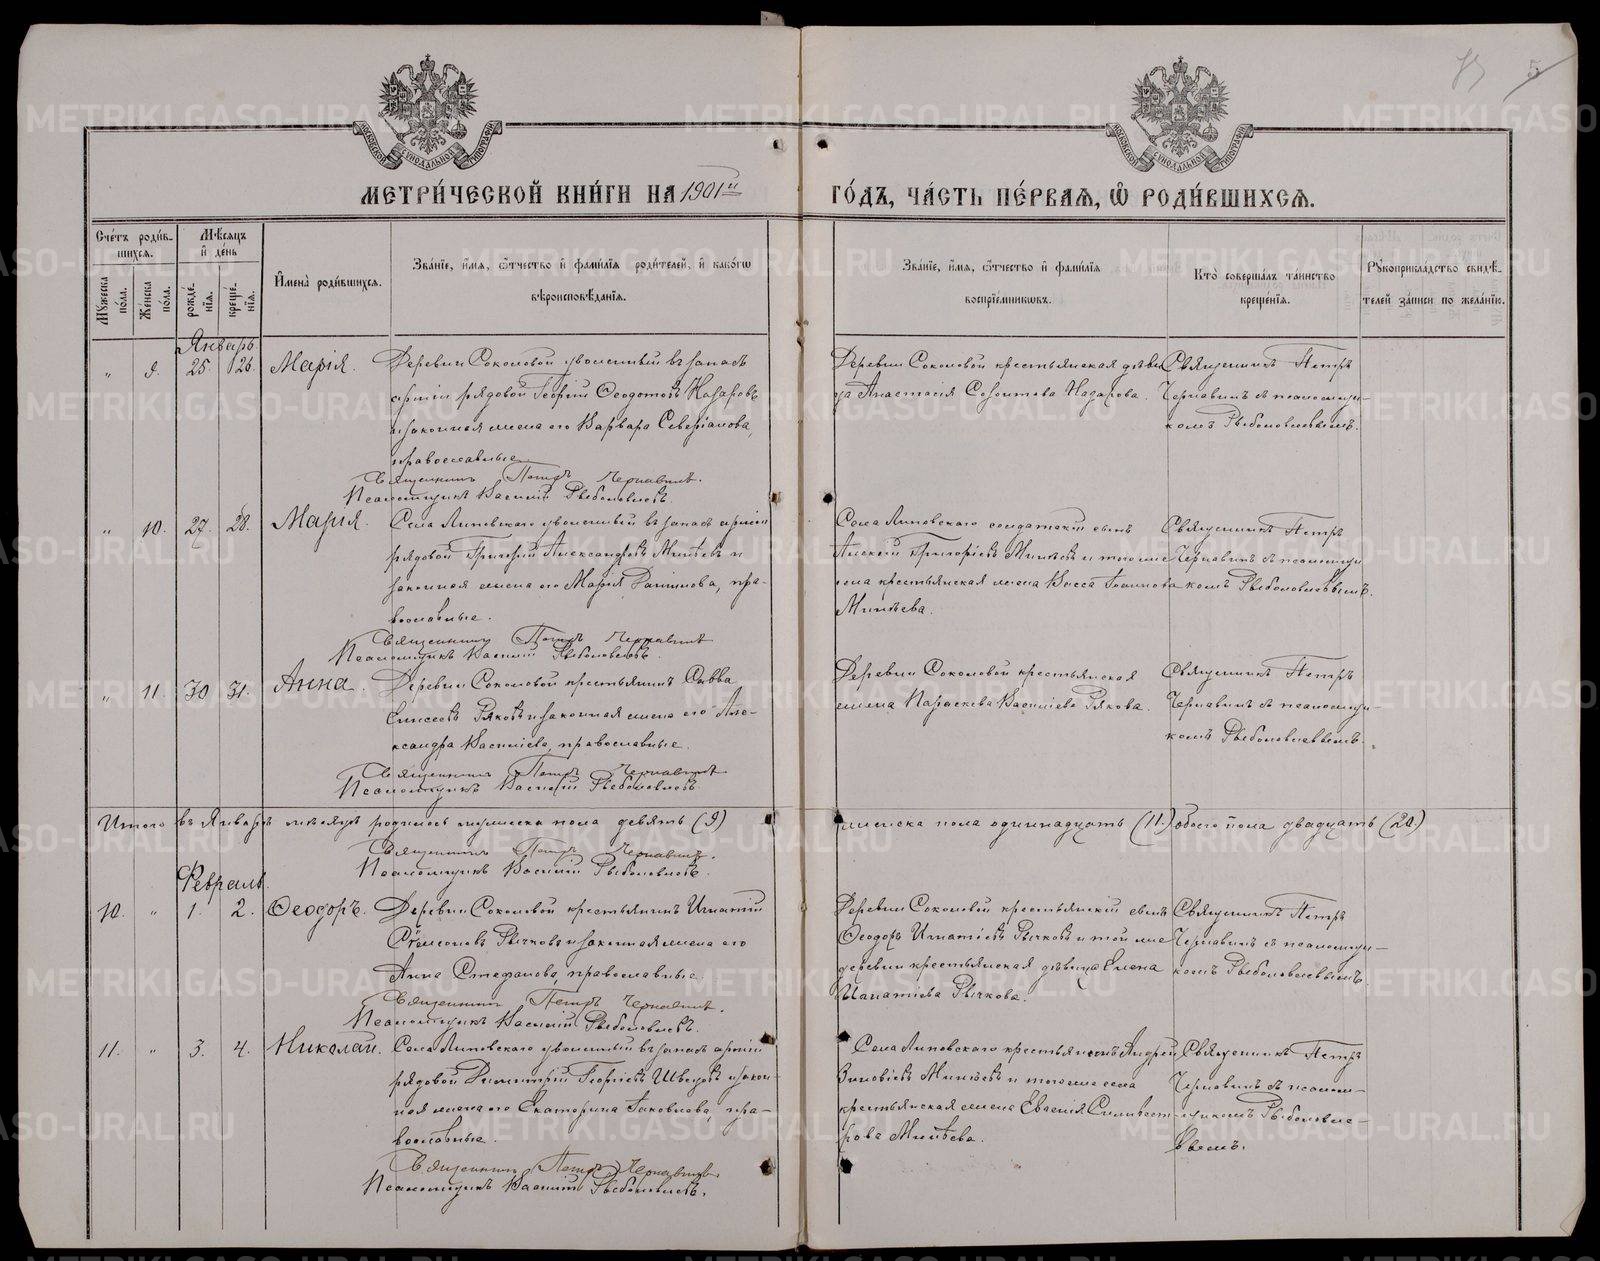 МЕТРИ́ЧЕСКОЙ КНИ́ГИ НА 1901й
ГО́ДЪ, ЧА́СТЬ ПЕ́РВАѦ, Ѡ҆ РОДИ́ВШИХСѦ.
МОСКОВСКОЙ СѴНОДАЛЬНОЙ ТИПОГРАФІИ
МОСКОВСКОЙ СѴНОДАЛЬНОЙ ТИПОГРАФІИ
5
Сче́тъ роди́в-
шихсѧ.
Мѣ́сѧцъ
и҆ де́нь
Мꙋ́жеска по́ла.
Же́нска по́ла.
рожде́-нїѧ.
креще́-нїѧ.
И҆мена̀ роди́вшихсѧ.
Зва́нїе, и҆́мѧ, ѻ҆́тчество и҆ фамѝлїѧ роди́телей, и҆ како́гѡ
вѣроисповѣ́данїѧ.
Зва́нїе, и҆́мѧ, ѻ҆́тчество и҆ фамѝлїѧ
воспрїе́мникѡвъ.
Кто̀ соверша́лъ та́инство
креще́нїѧ.
Рꙋкоприкла́дство свидѣ́-
телей за́писи по жела́нїю.
Январь
" 9. 25. 26. Марія. Деревни Соколовой уволенный въ запасъ
арміи рядовой Георгій Ѳеодотовъ Назаровъ
и законная жена его Варвара Северіанова,
православные.
Священникъ Петръ Чернавинъ.
Псаломщикъ Василій Рыболовлевъ.
Деревни Соколовой крестьянская дѣви
ца Анастасія Назарова.
Священникъ Петръ
Чернавинъ съ псаломщи-
комъ Рыболовлевымъ.
" 10. 27. 28. Марія. Села Липовскаго уволенный въ запасъ арміи
рядовой Григорій Александровъ Минѣевъ и
законная жена его Марія, пра-
вославные.
Священникъ Петръ Чернавинъ
Псаломщикъ Василій Рыболовлевъ.
Села Липовскаго солдатскій сынъ
Алексій Григоріевъ Минѣевъ и того же
села крестьянская жена Васса
Минѣева.
Священникъ Петръ
Чернавинъ съ псаломщи
комъ Рыболовлевымъ.
" 11. 30 31. Анна. Деревни Соколовой крестьянинъ Савва
Елисеевъ и законная жена его Але-
ксандра Василіева, православные.
Священникъ Петръ Чернавинъ
Псаломщикъ Василій Рыболовлевъ.
Деревни Соколовой крестьянская
жена Параскева Василіева
Священникъ Петръ
Чернавинъ съ псаломщи-
комъ Рыболовлевымъ.
Итого въ Январѣ мѣсяцѣ родилось мужеска пола девять (9)
женска пола одиннадцать (11.) обоего пола двадцать (20.)
Священникъ Петръ Чернавинъ.
Псаломщикъ Василій Рыболовлевъ.
Февраль.
10. " 1. 2. Ѳеодоръ. Деревни Соколовой крестьянинъ Игнатій
Сѵмеоновъ Рычковъ и законная жена его
Анна Стефанова, православные.
Священникъ Петръ Чернавинъ.
Псаломщикъ Василій Рыболовлевъ.
Деревни Соколовой крестьянскій сынъ
Ѳеодоръ Игнатіевъ Рычковъ и той же
деревни крестьянская дѣвица Елена
Игнатіева Рычкова.
Священникъ Петръ
Чернавинъ съ псаломщи-
комъ Рыболовлевымъ
11. " 3. 4. Николай. Села Липовскаго уволенный въ запасъ арміи
рядовой Димитрій Георгіевъ Швецовъ и закон-
ная жена его Екатерина Іаковлова, пра-
вославные.
Священникъ Петръ Чернавинъ
Псаломщикъ Василій Рыболовлевъ.
Села Липовскаго крестьянинъ Андрей
Зиновіевъ Минѣевъ и того же села
крестьянская жена Евгенія Силивест-
рова Минѣева.
Священникъ Петръ
Чернавинъ съ псалом-
щикомъ Рыболовле-
вымъ.
METRIKI.GASO-URAL.RU